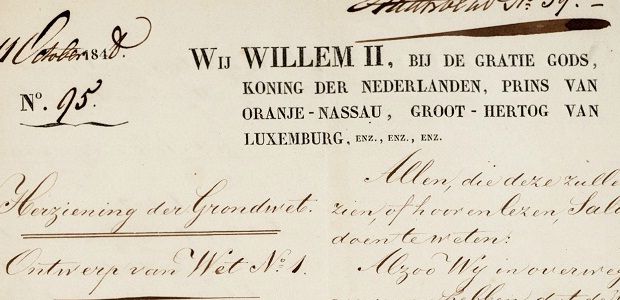 Staatsblad N° 59.
11 October 1848.
N°. 95.
WIJ WILLEM II, BIJ DE GRATIE GODS,
KONING DER NEDERLANDEN, PRINS VAN
ORANJE-NASSAU, GROOT-HERTOG VAN
LUXEMBURG, ENZ., ENZ., ENZ.
Herziening der Grondwet.
Ontwerp van Wet N° 1.
Allen, die deze zulle
zien, of hooren lezen, Salu
doen te weten:
Alzoo Wij in overweg
hebben dat de